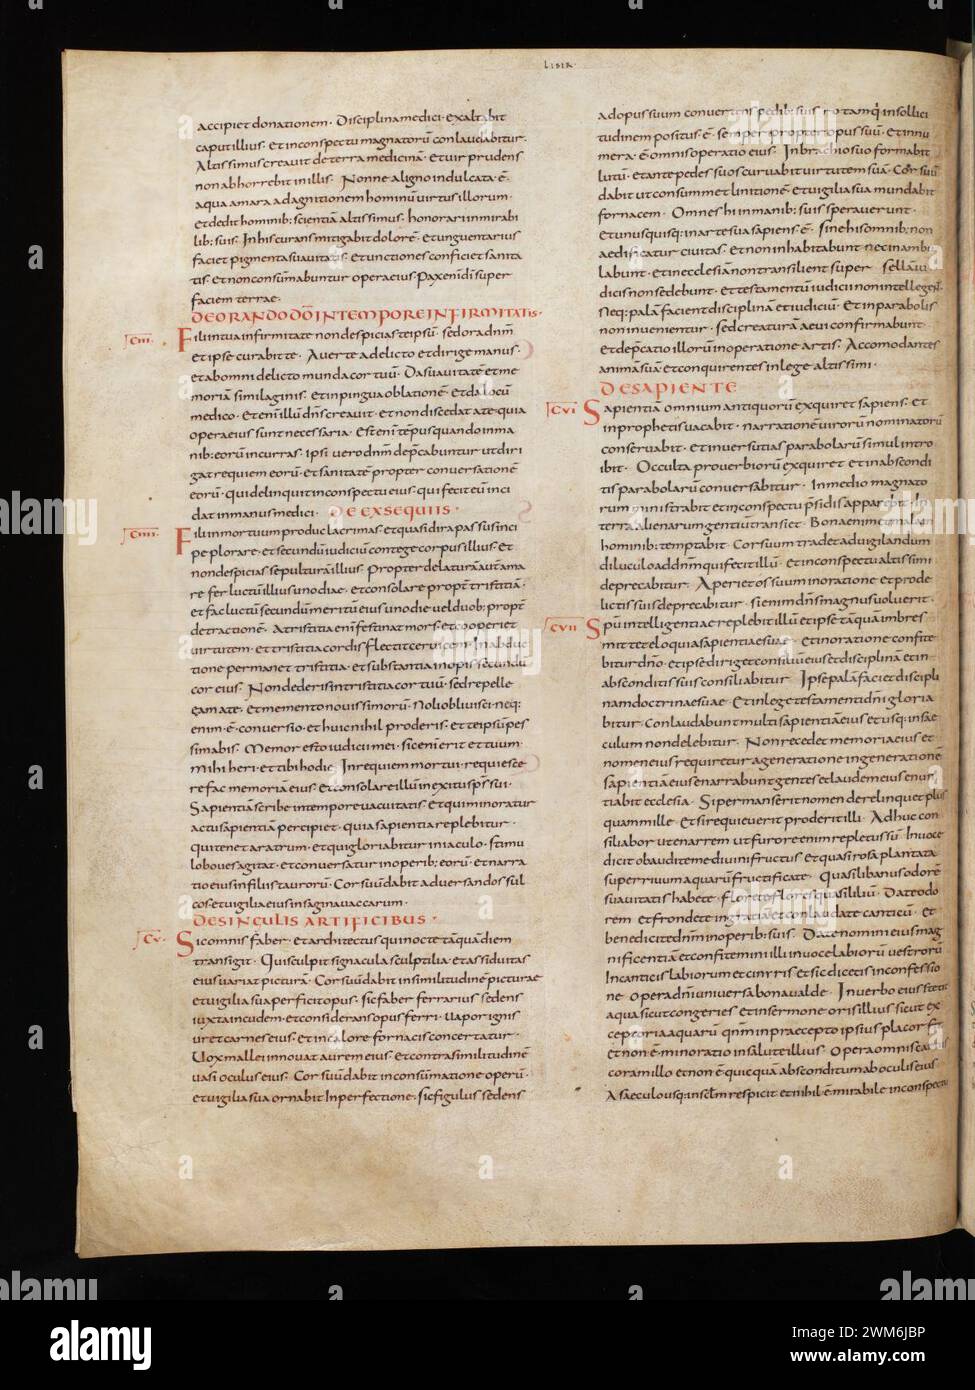 LIBER·
accipiet donationem· Disciplina medici exaltabit
caput illius· Et in conspectu magnatorū conlaudabitur·
Altissimus creavit de terra medicinā· Et vir prudens
non abhorrebit in illis· Nonne a ligno indulcata ē·
aqua amara ad agnitionem hominū virtus illorum·
Et dedit hominib: scientiā altissimus· honorari in mirabi
lib: suis· In his curans mitigabit dolorē· Et unguentarius
faciet pigmenta suavitatis· Et unctiones conficiet sanita
tis· Et non consūmabuntur opera eius· Pax enī dī super
faciem terrae·
DE ORANDO DŌ IN TEMPORE INFIRMITATIS·
CIII· Fili in tua infirmitate non despicias teipsū· sed ora dn̄m
Et ipse curabit te· Averte a delicto et dirige manus·
Et ab omni delicto munda cor tuū· Da suavitatē et me
moriā similaginis· Et inpingua oblationē· Et da locū
medico· Et enī illū dn̄s creavit· et non discedat a te· quia
opera eius sunt necessaria· Est enī tēpus quando in ma
nib: eorū incurras· Ipsi vero dn̄m dep̄cabuntur ut diri
gat requiem eorū· Et sanitatē propter conversationē
eorū· qui delinquit in conspectu eius· qui fecit eū inci
dat in manus medici· DE EXSEQUIIS·
CIIII· Fili in mortuum produc lacrimas· Et quasi dira passus inci
pe plorare· et secundū iudiciū contege corpus illius· Et
non despicias sepulturā illius· Propter delaturā aūt ama
re fer luctū illius uno die· et consolare propt̄ tristitiā·
Et fac luctū secundū meritū eius uno die vel duob: propt̄
detractionē· A tristitia enī festinat mors· et cooperiet
virtutem· et tristitia cordis flectit cervicem· In abduc
tione permanet tristitia· et substantia inopis secundū
cor eius· Non dederis in tristitia cor tuū· sed repelle
eam a te· Et memento novissimorū· Noli oblivisci neq:
enim ē conversio· et huic nihil proderis· et teipsū pes
simabis· Memor esto iudicii mei· sic enī erit et tuum·
Mihi heri· et tibi hodie· In requiem mortui· requiesce
re fac memoriā eius· Et consolare illū in exitu sp̄s sui·
Sapientiā scribe in tempore vacuitatis· Et qui minoratur
actu sapientiā percipiet· quia sapientia replebitur·
qui tenet aratrum· et qui gloriabitur in iaculo· stimu
lo boves agitat· et conversatur in operib: eorū· Et narra
tio eius in filiis taurorū· Cor suū dabit ad versandos sul
cos· et vigilia eius in sagina vaccarum·
DE SINGULIS ARTIFICIBUS·
CV· Sic omnis faber· et architectus qui nocte tāquā diem
transigit· Qui sculpit signacula sculptilia· et assiduitas
eius variat picturā· Cor suū dabit in similitudinē picturae
et vigilia sua perficit opus· sic faber ferrarius sedens
iuxta incudem· et considerans opus ferri· Vapor ignis
uret carnes eius· Et in calore fornacis concertatur·
Vox mallei innovat aurem eius· Et contra similitudinē
vasi oculus eius· Cor suū dabit in consūmatione operū·
et vigilia sua ornabit In perfectione· sic figulus sedens
ad opus suum convertens pedib: suis rotam qı̄ in sollici
tudinem positus ē· semper propter opus suū· Et innu
mera ē omnis operatio eius· In brachio suo formabit
lutū· et ante pedes suos curvabit virtutem suā· Cor suū
dabit ut consummet linitionē et vigilia sua mundabit
fornacem· Omnes hi in manib: suis speraverunt·
Et unusquisq: in arte sua sapiens ē· sine his omnib: non
aedificatur civitas· Et non inhabitabunt nec inambu
labunt· et in ecclesiā non transilient super sellā iu
dicis non sedebunt· Et testamentū iudicii non intellegent·
Neq: palā facient disciplinā et iudiciū· Et in parabolis
non invenientur· sed creaturā aevi confirmabunt·
et dep̄catio illorū in operatione artis· Accomodantes
animā suā et conquirentes in lege altissimi·
DE SAPIENTE
CVI· Sapientiā omnium antiquorū exquiret sapiens· Et
in prophetis vacabit· narrationē virorū nominatorū
conservabit· Et in versutias parabolarū simul intro
ibit· Occulta proverbiorū exquiret et in abscondi
tis parabolarū conversabitur· In medio magnato
rum ministrabit et in conspectu p̄sidis apparebit· In
terrā alienarum gentiū transiet· Bona enī et mala in
hominib: temptabit· Cor suum tradet ad vigilandum
diluculo ad dn̄m qui fecit illū· Et in conspectu altissimi
deprecabitur· Aperiet os suum in oratione et pro de
lictis suis deprecabitur· si enim dn̄s magnus voluerit·
CVII· Spū intelligentiae replebit illū et ipse tāquā imbres
mittet eloquia sapientiae suae· Et in oratione confite
bitur dn̄o· et ipse diriget consiliū eius et disciplinā et in
absconditis suis consiliabitur· Ipse palā faciet discipli
nam doctrinae suae· Et in lege testamenti dn̄i gloria
bitur· Conlaudabunt multi sapientiā eius et usq: in sae
culum non delebitur· Non recedet memoria eius et
nomen eius requiretur a generatione in generationē
sapientiā eius enarrabunt gentes et laudem eius enun
tiabit ecclesia· Si permanserit nomen derelinquet plus
quam mille· Et si requieverit proderit illi· Ad huc con
siliabor ut enarrem ut furore enim repletus sū· In voce
dicit obaudite me divini fructus et quasi rosa plantata
super rivum aquarū fructificate· Quasi libanus odorē
suavitatis habete· florete flores quasi liliū· Date odo
rem et frondete in gratiā et conlaudate canticū· Et
benedicite dn̄m in operib: suis· Date nomini eius mag
nificentiā et confitemini illi in voce labiorū vestrorū
In canticis labiorum et cinyris et sic dicetis in confessio
ne· Opera dn̄i universa bona valde· In verbo eius stetit
aqua sicut congeries et in sermone oris illius sicut ex
ceptoria aquarū· qn̄m in praecepto ipsius placor fit
et non ē minoratio in salute illius· Opera omnis carnis
coram illo et non ē quicquā absconditum ab oculis eius·
A saeculo usq: in sc̄lm respicit et nihil ē mirabile in conspectu
alamy
Image ID: 2WM6JBP
www.alamy.com